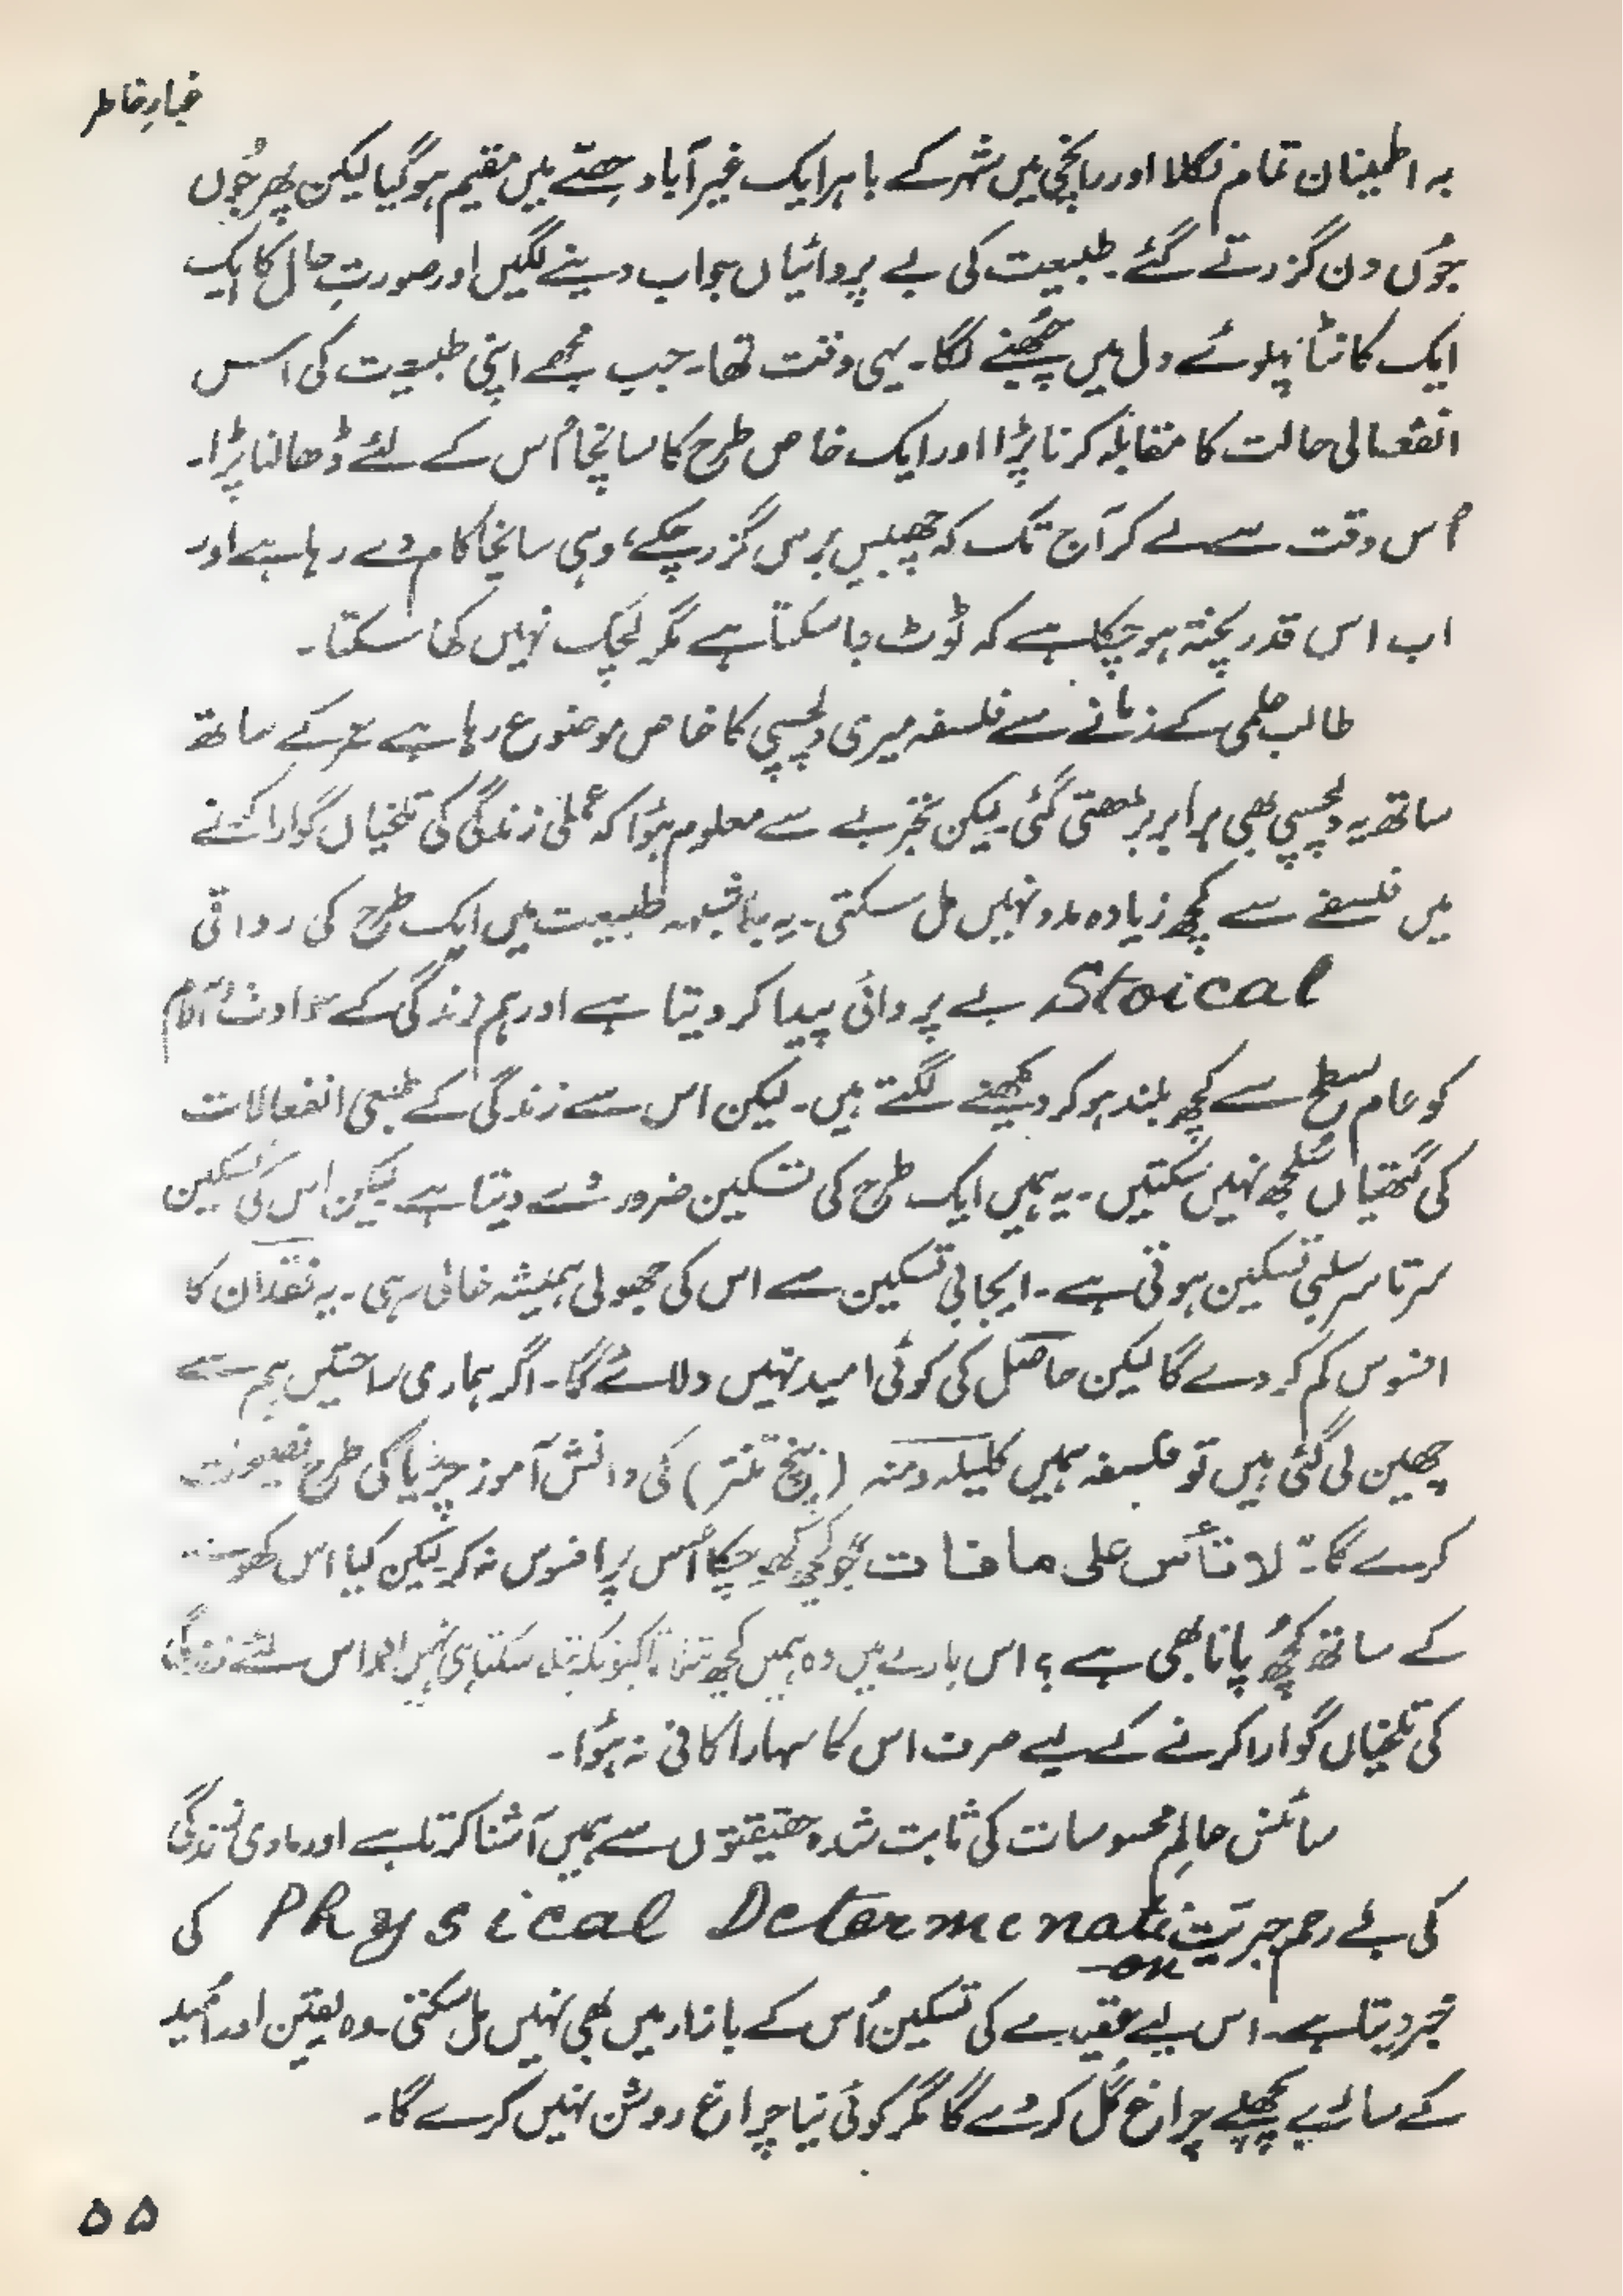 غبارِ خاطر
بہ اطمینان تمام نکلا اور رانچی میں شہر کے باہر ایک غیر آباد حصّے میں مقیم ہو گیا لیکن پھر جُوں
جُوں دن گزرتے گئے۔ طبیعت کی بے پروائیاں جواب دینے لگیں اور صورتِ حال کا ایک
ایک کانٹا پہلوئے دل میں چُبھنے لگا۔ یہی وقت تھا۔ جب مجھے اپنی طبیعت کی اس
انفعالی حالت کا مقابلہ کرنا پڑا اور ایک خاص طرح کا سانچا اُس کے لئے ڈھالنا پڑا۔
اُس وقت سے لے کر آج تک کہ چھبیس برس گزر چکے، وہی سانچا کام دے رہا ہے اور
اب اس قدر پختہ ہو چکا ہے کہ ٹوٹ جا سکتا ہے مگر لچک نہیں کھا سکتا۔
طالب علمی کے زمانے سے فلسفہ میری دلچسپی کا خاص موضوع رہا ہے عمر کے ساتھ
ساتھ یہ دلچسپی بھی برابر بڑھتی گئی۔ لیکن تجربے سے معلوم ہُوا کہ عملی زندگی کی تلخیاں گوارا کرنے
میں فلسفے سے کچھ زیادہ مدد نہیں مل سکتی۔ یہ بلاشبہہ طبیعت میں ایک طرح کی رواقی
Stoical بے پروائی پیدا کر دیتا ہے اور ہم زندگی کے حوادث و آلام
کو عام سطح سے کچھ بلند ہو کر دیکھنے لگتے ہیں۔ لیکن اس سے زندگی کے طبعی انفعالات
کی گتھیاں سُلجھ نہیں سکتیں۔ یہ ہمیں ایک طرح کی تسکین ضرور دے دیتا ہے لیکن اس کی تسکین
سرتاسر سلبی تسکین ہوتی ہے۔ ایجابی تسکین سے اس کی جھولی ہمیشہ خالی رہی۔ یہ فقدان کا
افسوس کم کر دے گا لیکن حاصل کی کوئی امید نہیں دلائے گا۔ اگر ہماری راحتیں ہم سے
چھین لی گئی ہیں تو فلسفہ ہمیں کلیلہ دمنہ (پنچ تنتر) کی دانش آموز چڑیا کی طرح نصیحت
کرے گا۔ ”لا تأس علی ما فات“ جو کچھ کھو چکا اُس پر افسوس نہ کر۔ لیکن کیا اس کھونے
کے ساتھ کچھ پانا بھی ہے؟ اس بارے میں وہ ہمیں کچھ نہیں بتلاتا کیونکہ بتلا سکتا ہی نہیں اور اس لئے زندگی
کی تلخیاں گوارا کرنے کے لیے صرف اس کا سہارا کافی نہ ہُوا۔
سائنس عالمِ محسوسات کی ثابت شدہ حقیقتوں سے ہمیں آشنا کرتا ہے اور مادی زندگی
کی بے رحم جبریّت Physical Determination کی
خبر دیتا ہے۔ اس لیے عقیدے کی تسکین اُس کے بازار میں بھی نہیں مل سکتی۔ وہ یقین اور اُمید
کے سارے پچھلے چراغ گُل کر دے گا مگر کوئی نیا چراغ روشن نہیں کرے گا۔
۵۵